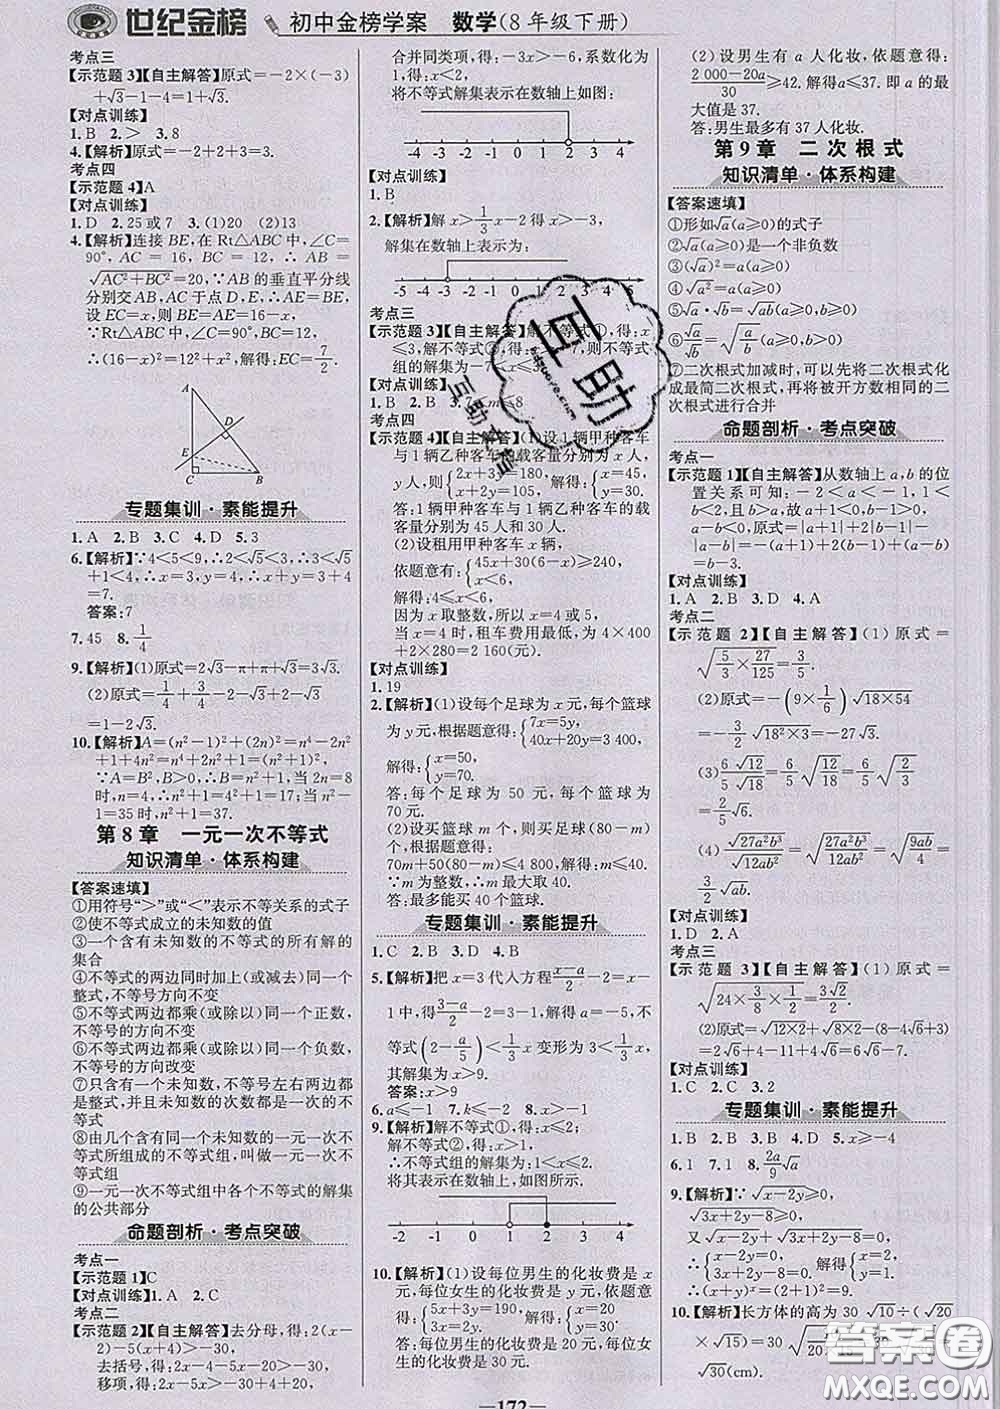 世纪金榜 初中金榜学案 数学(8年级下册)
考点三
【示范题3】【自主解答】原式=-2×(-3)
+√3-1-4=1+√3.
【对点训练】
1.B 2.> 3.8
4.【解析】原式=-2+2+3=3.
考点四
【示范题4】A
【对点训练】
1.D 2.25或7 3.(1)20 (2)13
4.【解析】连接BE,在Rt△ABC中,∠C=
90°, AC = 16, BC = 12, ∴ AB =
√AC²+BC²=20,∵AB的垂直平分线
分别交AB,AC于点D,E,∴AE=BE,
设EC=x,则BE=AE=16-x,
∵Rt△ABC中,∠C=90°,BC=12,
∴(16-x)²=12²+x²,解得:EC=7/2.
A
D
E
C B
专题集训·素能提升
1.A 2.B 3.C 4.D 5.3
6.【解析】∵4<5<9,∴2<√5<3,∴3<√5
+1<4,∴x=3,y=4,∴x+y=3+4
=7.
答案:7
7.45 8.1/4
9.【解析】(1)原式=2√3-π+π+√3=3√3.
(2)原式=1/4+3/4-2-√3+2-√3
=1-2√3.
10.【解析】A=(n²-1)²+(2n)²=n⁴-2n²
+1+4n²=n⁴+2n²+1=(n²+1)²,
∵A=B²,B>0,∴B=n²+1,当2n=8
时,n=4,∴n²+1=4²+1=17;当n²-
1=35时,n²+1=37.
第8章 一元一次不等式
知识清单·体系构建
【答案速填】
①用符号“>”或“<”表示不等关系的式子
②使不等式成立的未知数的值
③一个含有未知数的不等式的所有解的
集合
④不等式的两边同时加上(或减去)同一个
整式,不等号方向不变
⑤不等式两边都乘(或除以)同一个正数,
不等号的方向不变
⑥不等式两边都乘(或除以)同一个负数,
不等号的方向改变
⑦只含有一个未知数,不等号左右两边都
是整式,并且未知数的次数都是一次的不等
式
⑧由几个含有同一个未知数的一元一次不
等式所组成的不等式组,叫做一元一次不
等式组
⑨一元一次不等式组中各个不等式的解集
的公共部分
命题剖析·考点突破
考点一
【示范题1】C
【对点训练】1.A 2.C
考点二
【示范题2】【自主解答】去分母,得:2(x-
2)-5(x+4)>-30,
去括号,得:2x-4-5x-20>-30,
移项,得:2x-5x>-30+4+20,
合并同类项,得:-3x>-6,系数化为
1,得:x<2,
将不等式解集表示在数轴上如图:
-4 -3 -2 -1 0 1 2 3 4
【对点训练】
1.B
2.【解析】解x>1/3x-2得x>-3,
解集在数轴上表示为:
-5 -4 -3 -2 -1 0 1 2 3 4 5
考点三
【示范题3】【自主解答】解不等式①,得:x
≤3,解不等式②,得:x>-7,则不等式
组的解集为-7<x≤3.
【对点训练】
考点四
【示范题4】【自主解答】(1)设1辆甲种客车
与1辆乙种客车的载客量分别为x人,
y人,则{2x+3y=180, x+2y=105, 解得:{x=45, y=30.
答:1辆甲种客车与1辆乙种客车的载
客量分别为45人和30人.
(2)设租用甲种客车x辆,
依题意有:{45x+30(6-x)≥240, x<6,
解得:4≤x<6,
因为x取整数,所以x=4或5,
当x=4时,租车费用最低,为4×400
+2×280=2 160(元).
【对点训练】
1.19
2.【解析】(1)设每个足球为x元,每个篮球
为y元,根据题意得:{7x=5y, 40x+20y=3 400,
解得:{x=50, y=70.
答:每个足球为50元,每个篮球为
70元.
(2)设买篮球m个,则买足球(80-m)
个,根据题意得:
70m+50(80-m)≤4 800,解得:m≤40.
∵m为整数,∴m最大取40.
答:最多能买40个篮球.
专题集训·素能提升
1.C 2.B 3.D 4.B
5.【解析】把x=3代入方程(x-a)/2-2=x-
1中,得(3-a)/2-2=3-1,解得:a=-5,不
等式(2-a/5)<1/3x变形为3<1/3x,
其解集为x>9.
答案:x>9
6.a≤-1 7.k≤-2 8.x>-1
9.【解析】解不等式①,得:x≤2;
解不等式②,得:x>1;
∴不等式组的解集为:1<x≤2,
将其表示在数轴上,如图所示.
-2 -1 0 1 2 3 4
10.【解析】(1)设每位男生的化妆费是x
元,每位女生的化妆费是y元,依题意
得:{5x+3y=190, 3x=2y, 解得:{x=20, y=30.
答:每位男生的化妆费是20元,每位女
生的化妆费是30元.
(2)设男生有a人化妆,依题意得:
(2 000-20a)/30≥42.解得a≤37.即a的最
大值是37.
答:男生最多有37人化妆.
第9章 二次根式
知识清单·体系构建
【答案速填】
①形如√a(a≥0)的式子
②√a(a≥0)是一个非负数
③(√a)²=a(a≥0)
④√a²=a(a≥0)
⑤√a·√b=√ab(a≥0,b≥0)
⑥√a/√b=√(a/b)(a≥0,b>0)
⑦二次根式加减时,可以先将二次根式化
成最简二次根式,再将被开方数相同的二
次根式进行合并
命题剖析·考点突破
考点一
【示范题1】【自主解答】从数轴上a,b的位
置关系可知:-2<a<-1,1<
b<2,且b>a,故a+1<0,b-1>0,
a-b<0,原式=|a+1|+2|b-1|-
|a-b|=-(a+1)+2(b-1)+(a-b)
=b-3.
【对点训练】
1.A 2.B 3.D 4.A
考点二
【示范题2】【自主解答】(1)原式=
√(5/3×27/125)=3/5.
(2)原式=-(9×1/6)√18×54
=-3/2√18²×3=-27√3.
(3)6√12/5√15=6/5√(12/15)=6/5√(4/5)
=12/25√5.
(4)√27a²b³/√12ab²=√(27a²b³/12ab²)=√(9ab/4)=
3/2√ab.
【对点训练】
1.D 2.A
考点三
【示范题3】【自主解答】(1)原式=
√(24×3/8×1/2)=3√2/2.
(2)原式=√12×2+√8×2-(8-4√6+3)
=2√6+4-11+4√6=6√6-7.
【对点训练】
1.C 2.C 3.2
专题集训·素能提升
1.B 2.B 3.D 4.D 5.x≥-4
6.1 7.1 8.2a/9√a
9.【解析】∵√x-2y≥0,
√3x+2y-8≥0,
又√x-2y+√3x+2y-8=0,
∴{x-2y=0, 3x+2y-8=0, ∴{x=2, y=1.
10.【解析】长方体的高为30√10÷(√20
×√15)=30
√30(cm).
—172—
互助
互助文档
答案圈
MXQE.COM